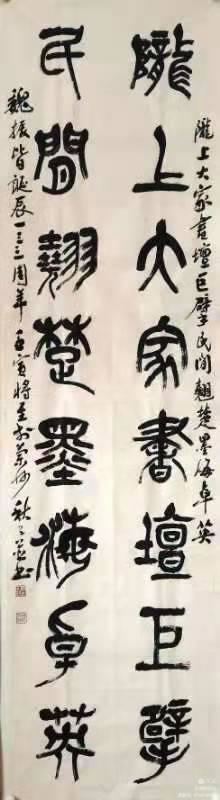 隴上大家書壇巨擘民间翹楚墨海卓英
隴上大家書壇巨擘
民間翹楚墨海卓英
魏振皆誕辰一三三周年壬寅将至於